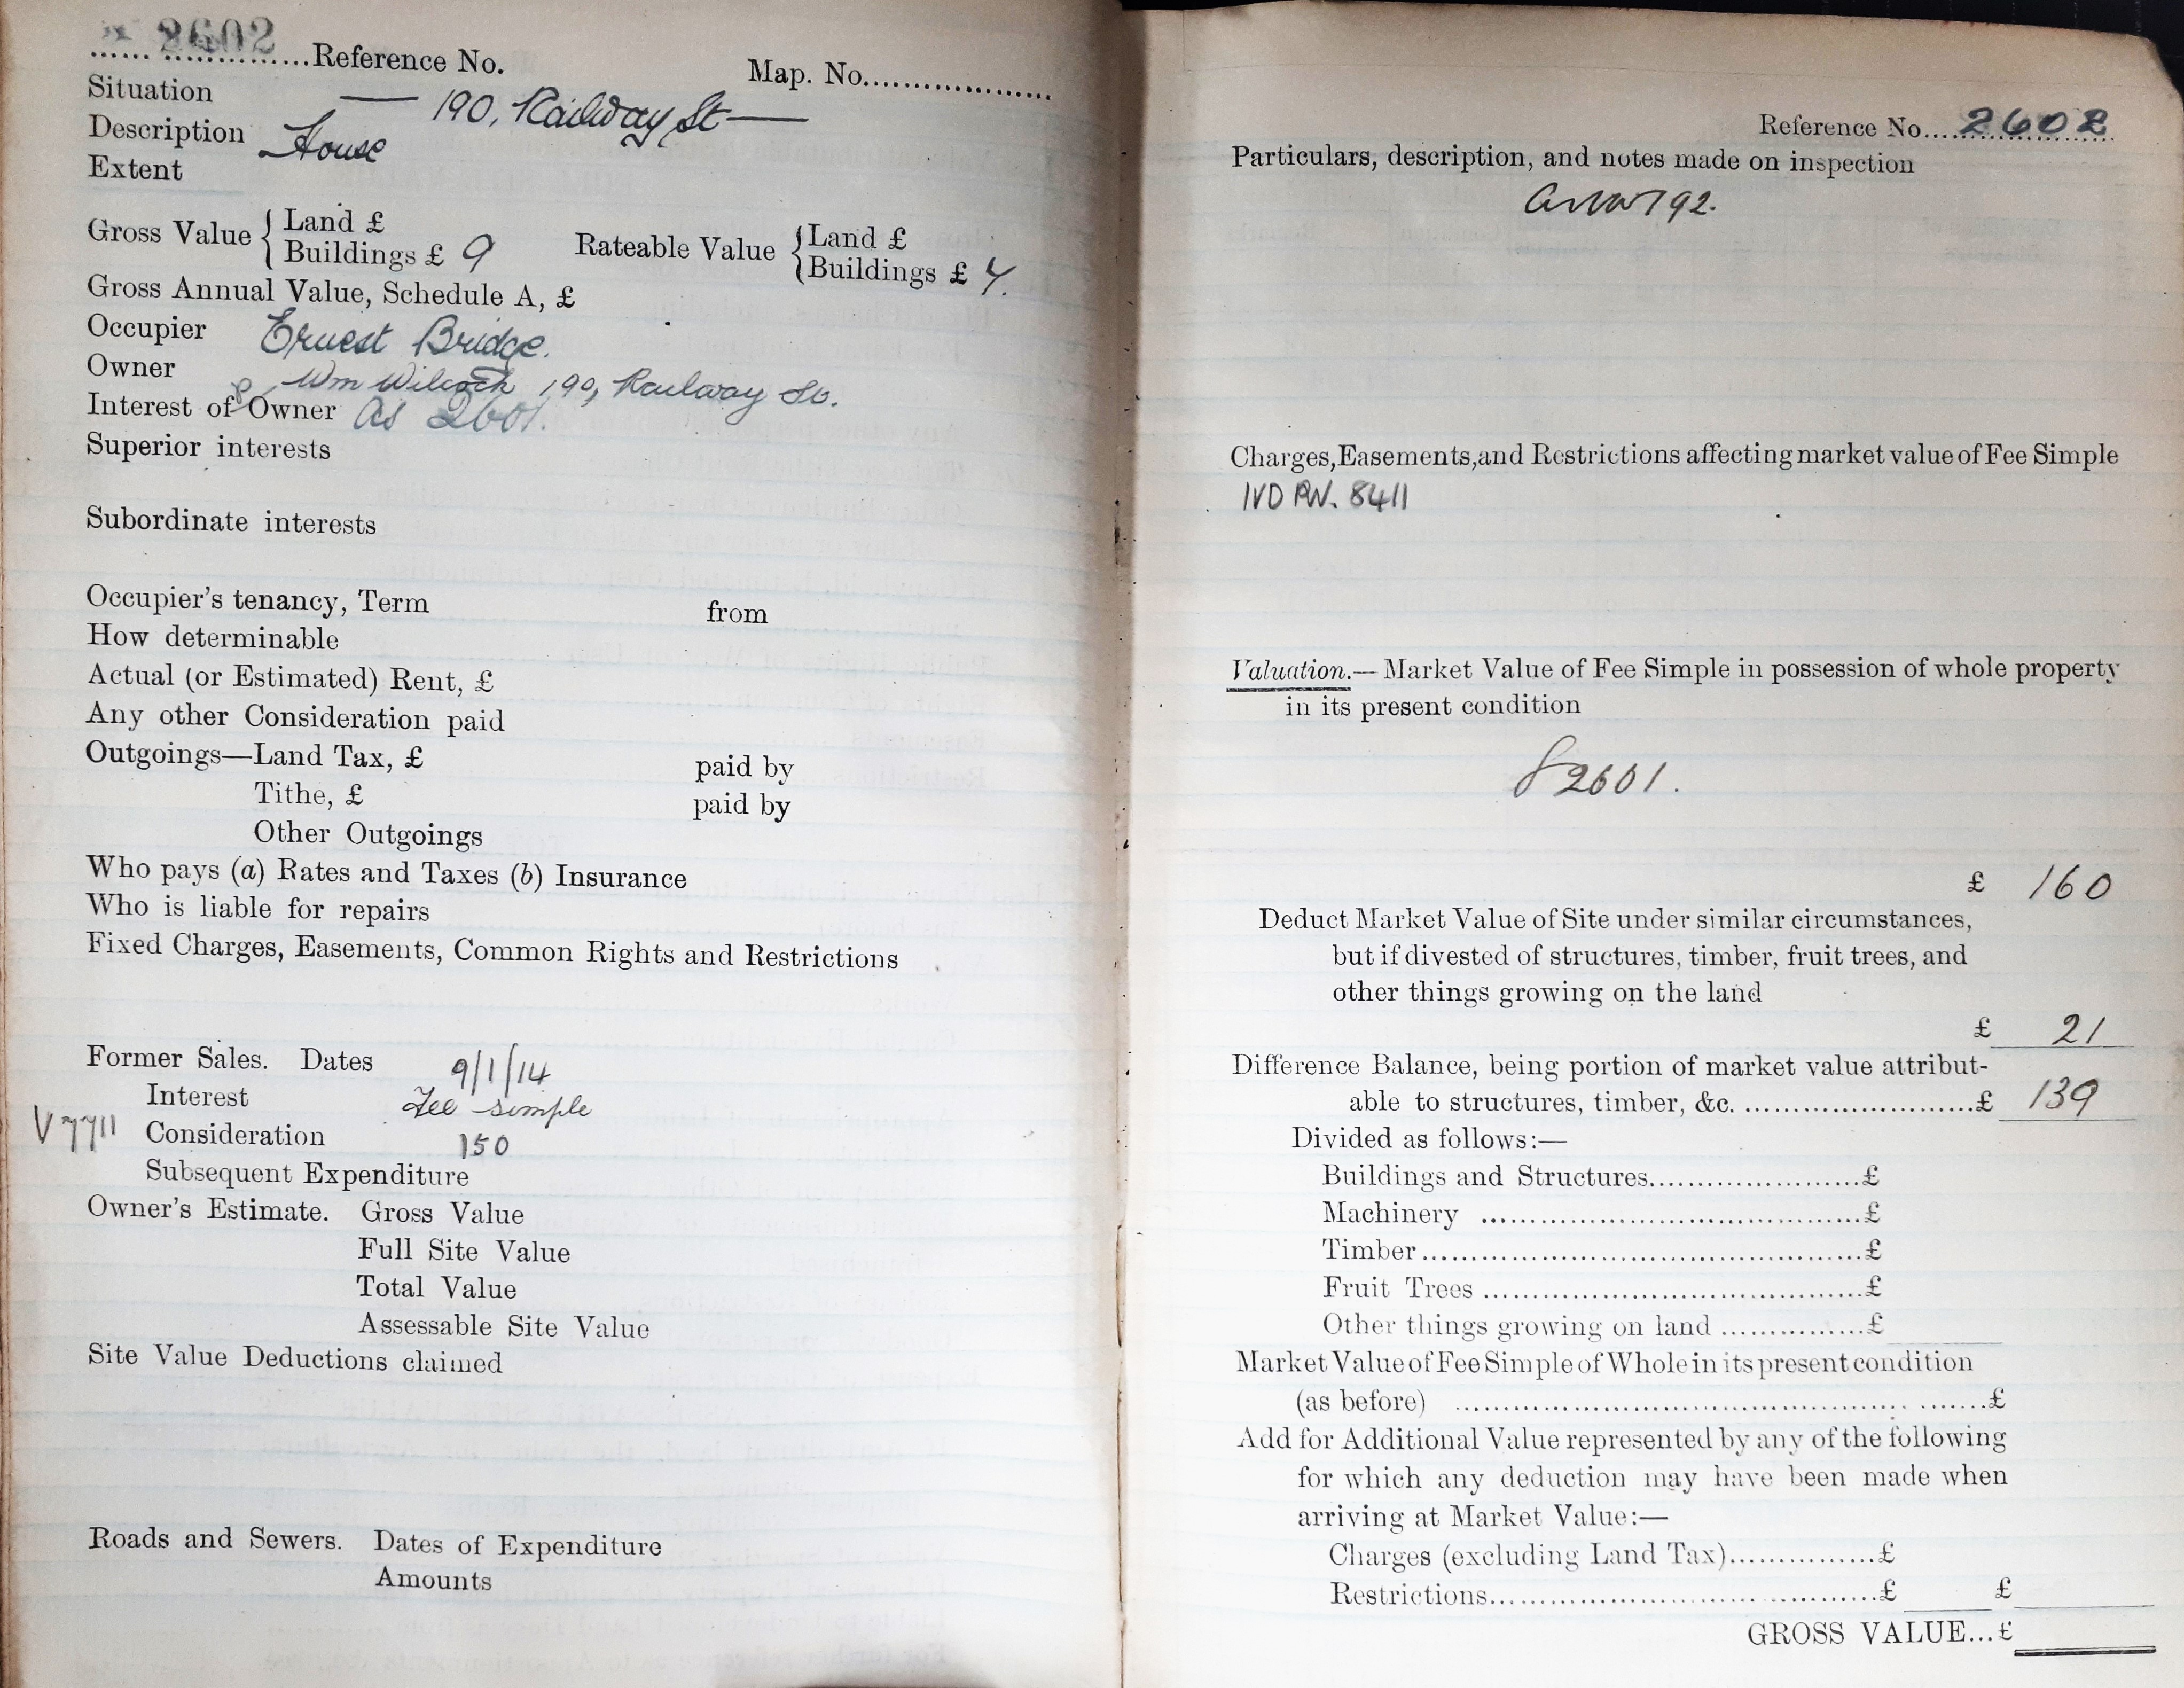 2602 Reference No. Map. No....................
Situation — 190, Railway St —
Description House
Extent
Gross Value { Land £
Buildings £ 9
Rateable Value { Land £
Buildings £ 7.
Gross Annual Value, Schedule A, £
Occupier Ernest Bridge.
Owner Wm Wilcock 190, Railway St.
Interest of Owner as 2601.
Superior interests
Subordinate interests
Occupier's tenancy, Term from
How determinable
Actual (or Estimated) Rent, £
Any other Consideration paid
Outgoings—Land Tax, £ paid by
Tithe, £ paid by
Other Outgoings
Who pays (a) Rates and Taxes (b) Insurance
Who is liable for repairs
Fixed Charges, Easements, Common Rights and Restrictions
Former Sales. Dates 9/1/14
Interest Fee simple
V7711 Consideration 150
Subsequent Expenditure
Owner's Estimate. Gross Value
Full Site Value
Total Value
Assessable Site Value
Site Value Deductions claimed
Roads and Sewers. Dates of Expenditure
Amounts
Reference No....2602
Particulars, description, and notes made on inspection
192.
Charges, Easements, and Restrictions affecting market value of Fee Simple
IVD PN. 8411
Valuation.— Market Value of Fee Simple in possession of whole property
in its present condition
2601.
£ 160
Deduct Market Value of Site under similar circumstances,
but if divested of structures, timber, fruit trees, and
other things growing on the land
£ 21
Difference Balance, being portion of market value attribut-
able to structures, timber, &c. ..........................£ 139
Divided as follows:—
Buildings and Structures.......................£
Machinery ..........................................£
Timber................................................£
Fruit Trees .........................................£
Other things growing on land ...............£
Market Value of Fee Simple of Whole in its present condition
(as before) ..........................................................£
Add for Additional Value represented by any of the following
for which any deduction may have been made when
arriving at Market Value:—
Charges (excluding Land Tax)................£
Restrictions...........................................£ £
GROSS VALUE...£